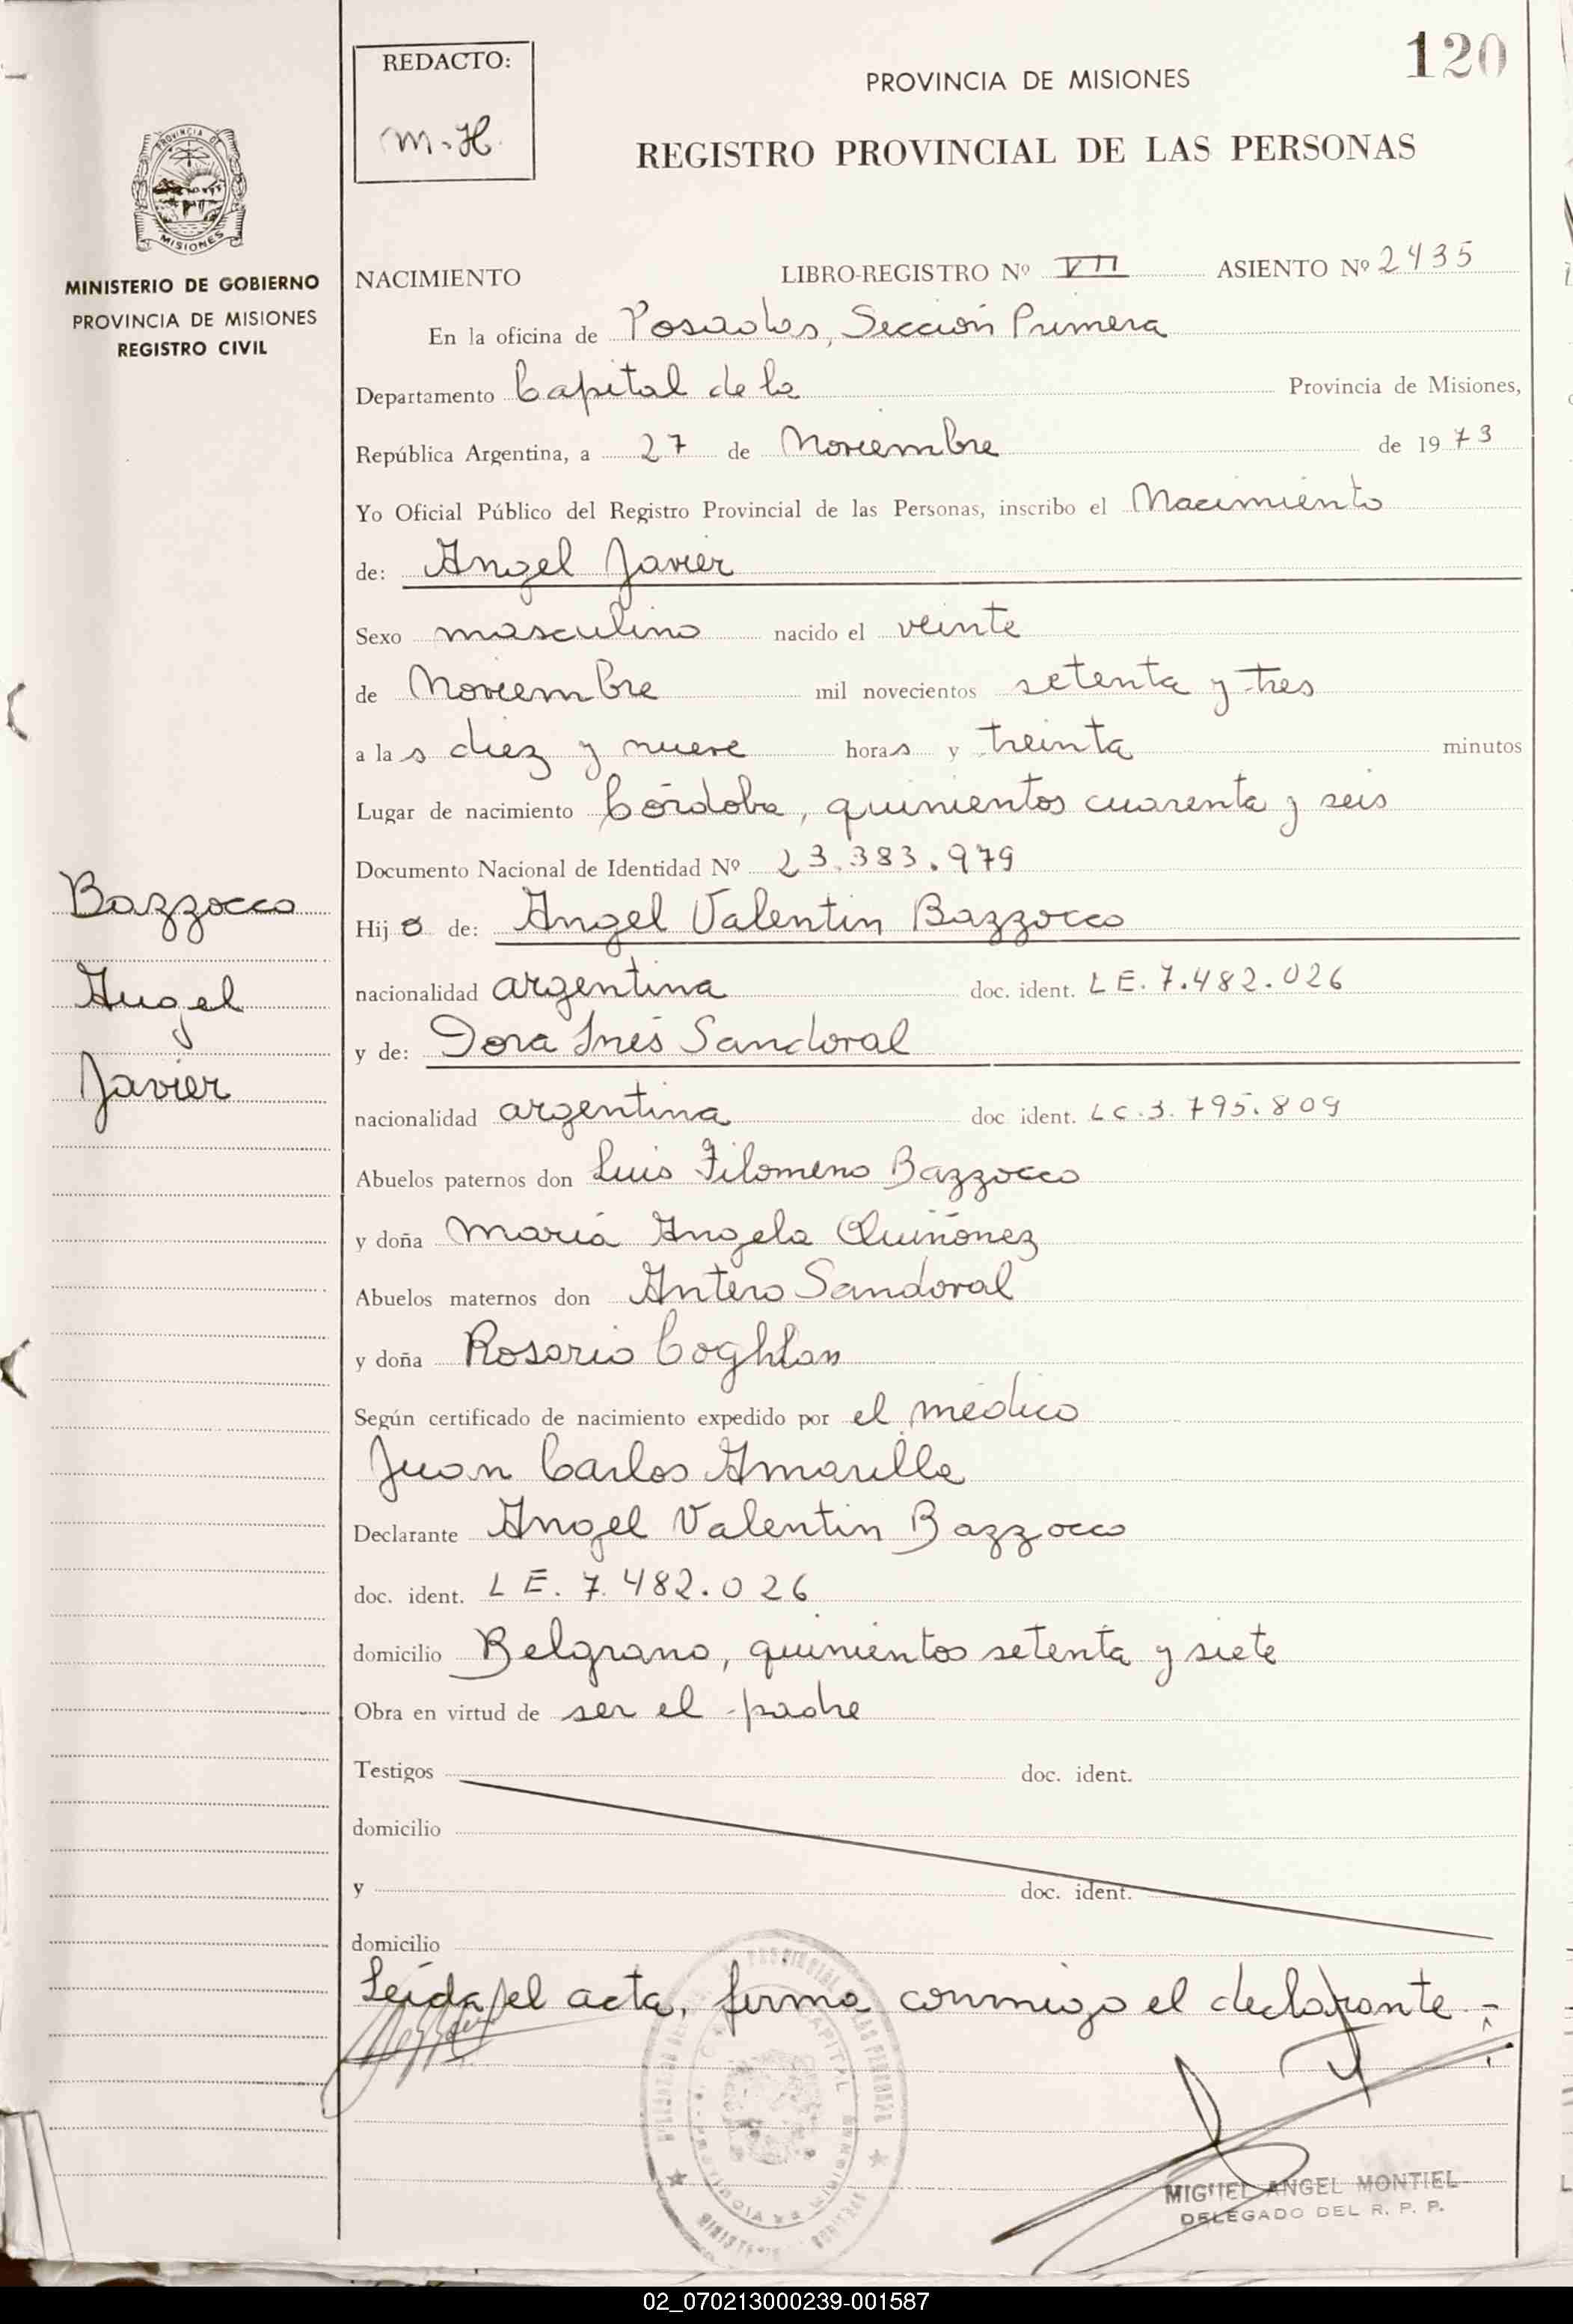 REDACTO:
M.H.
120
PROVINCIA DE MISIONES
REGISTRO PROVINCIAL DE LAS PERSONAS
PROVINCIA DE
MISIONES
MINISTERIO DE GOBIERNO
PROVINCIA DE MISIONES
REGISTRO CIVIL
NACIMIENTO LIBRO-REGISTRO Nº VII ASIENTO Nº 2435
En la oficina de Posadas, Sección Primera
Departamento Capital de la Provincia de Misiones,
República Argentina, a 27 de Noviembre de 1973
Yo Oficial Público del Registro Provincial de las Personas, inscribo el Nacimiento
de: Angel Javier
Sexo masculino nacido el veinte
de Noviembre mil novecientos setenta y tres
a las diez y nueve horas y treinta minutos
Lugar de nacimiento Córdoba, quinientos cuarenta y seis
Documento Nacional de Identidad Nº 23.383.979
Bazzocco
Angel
Javier
Hijo de: Angel Valentin Bazzocco
nacionalidad argentina doc. ident. LE. 7.482.026
y de: Dora Inés Sandoval
nacionalidad argentina doc ident. LC.3.795.809
Abuelos paternos don Luis Filomeno Bazzocco
y doña María Angela Quiñónez
Abuelos maternos don Antero Sandoval
y doña Rosario Coghlan
Según certificado de nacimiento expedido por el médico
Juan Carlos Amarilla
Declarante Angel Valentin Bazzocco
doc. ident. LE. 7.482.026
domicilio Belgrano, quinientos setenta y siete
Obra en virtud de ser el padre
Testigos doc. ident.
domicilio
y doc. ident.
domicilio
Leída el acta, firma conmigo el declarante.-
MIGUEL ANGEL MONTIEL
DELEGADO DEL R. P. P.
02_070213000239-001587